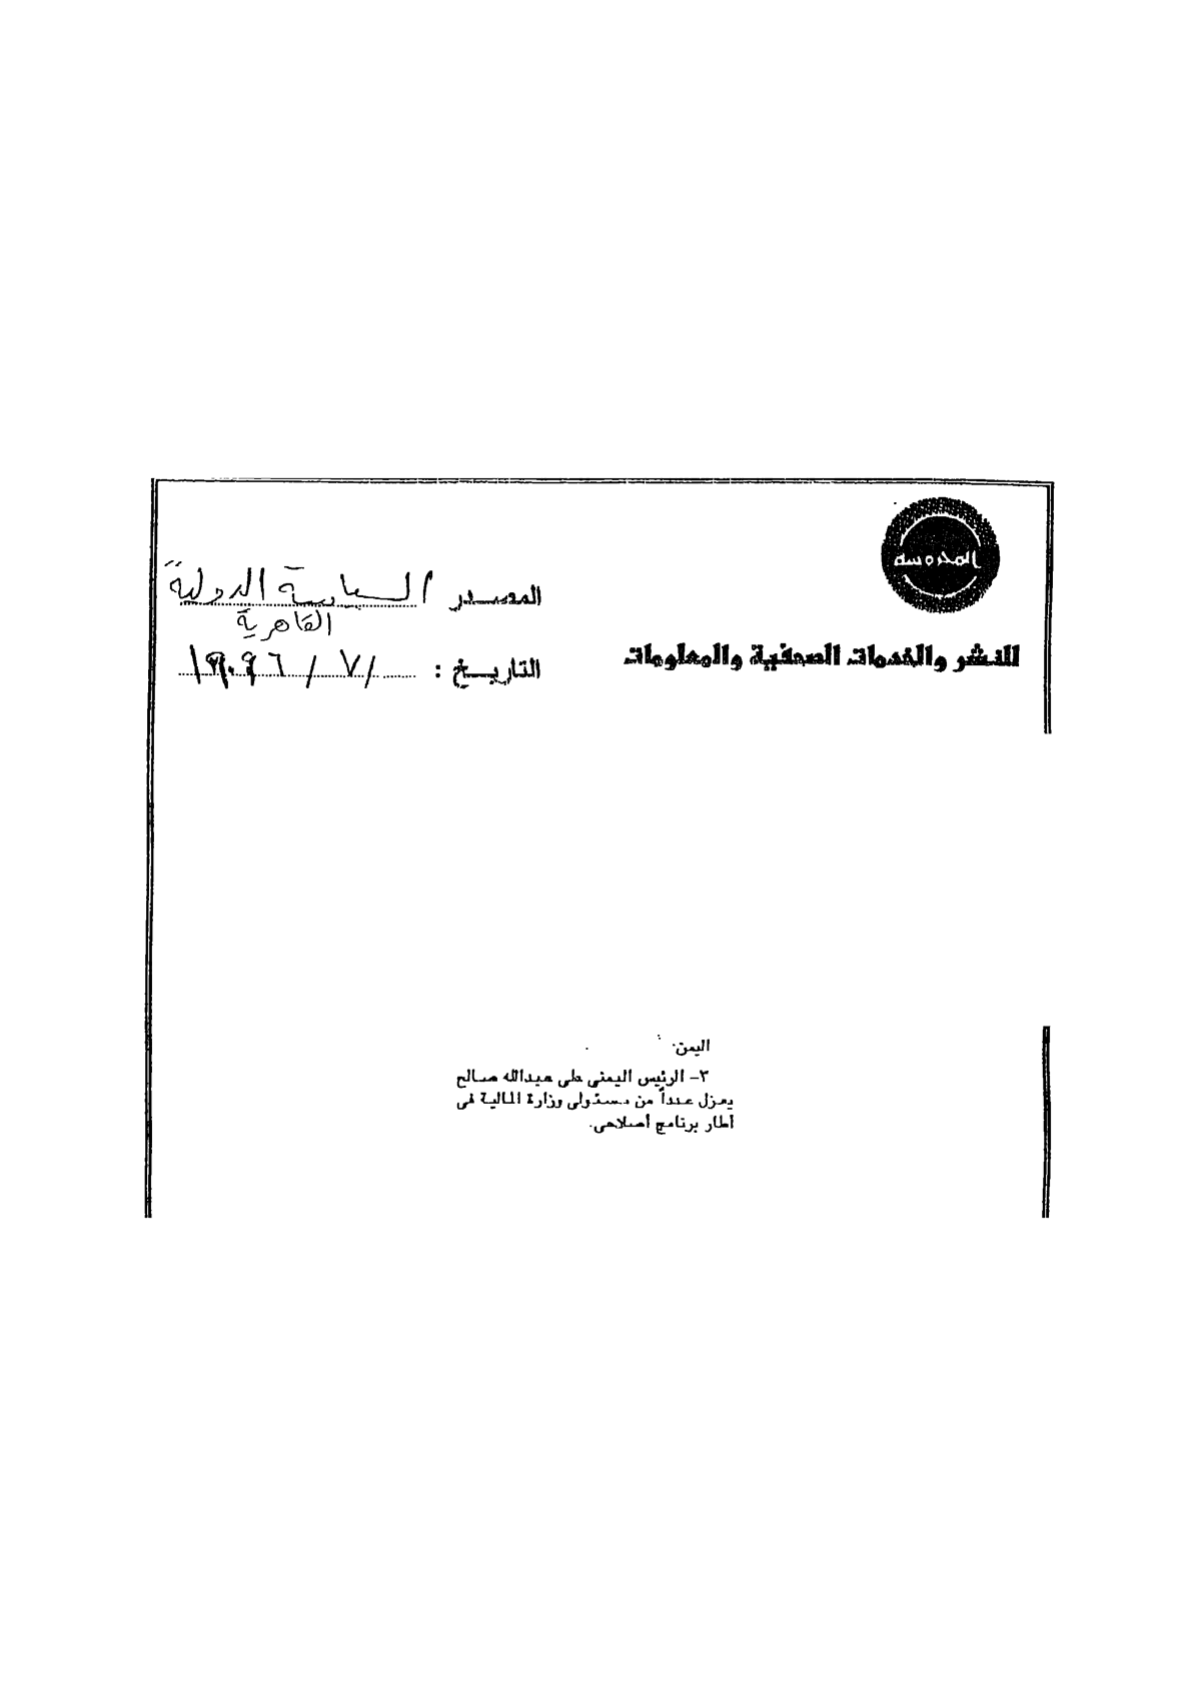 المحروسة
للنشر والخدمات الصحفية والمعلومات
المصدر السياسة الدولية
القاهرية
التاريخ : / ٧ / ١٩٩٦
اليمن:
٣- الرئيس اليمنى على عبدالله صالح
يعزل عدداً من مسئولى وزارة المالية فى
أطار برنامج أصلاحى.